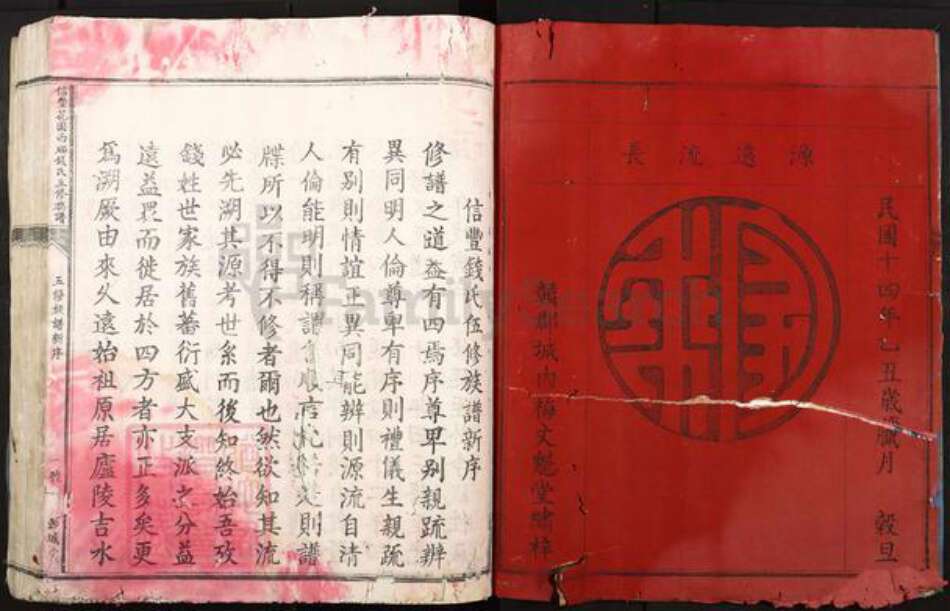 源遠流長
民國十四年乙丑歲臘月 穀旦
贛郡城內梅文魁堂晴梓
信豐錢氏伍修族譜新序
修譜之道益有四焉序尊卑別親疏辨
異同明人倫尊卑有序則禮儀生親疏
有別則情誼正異同能辨則源流自清
人倫能明則稱謂
是則譜
牒所以不得不修者爾也然欲知其流
必先溯其源考世系而後知終始吾攷
錢姓世家族舊蕃衍盛大支派之分益
遠益眾而徙居於四方者亦正多矣更
為溯厥由來久遠始祖原居廬陵吉水
錢氏五修族譜
五修族譜新序